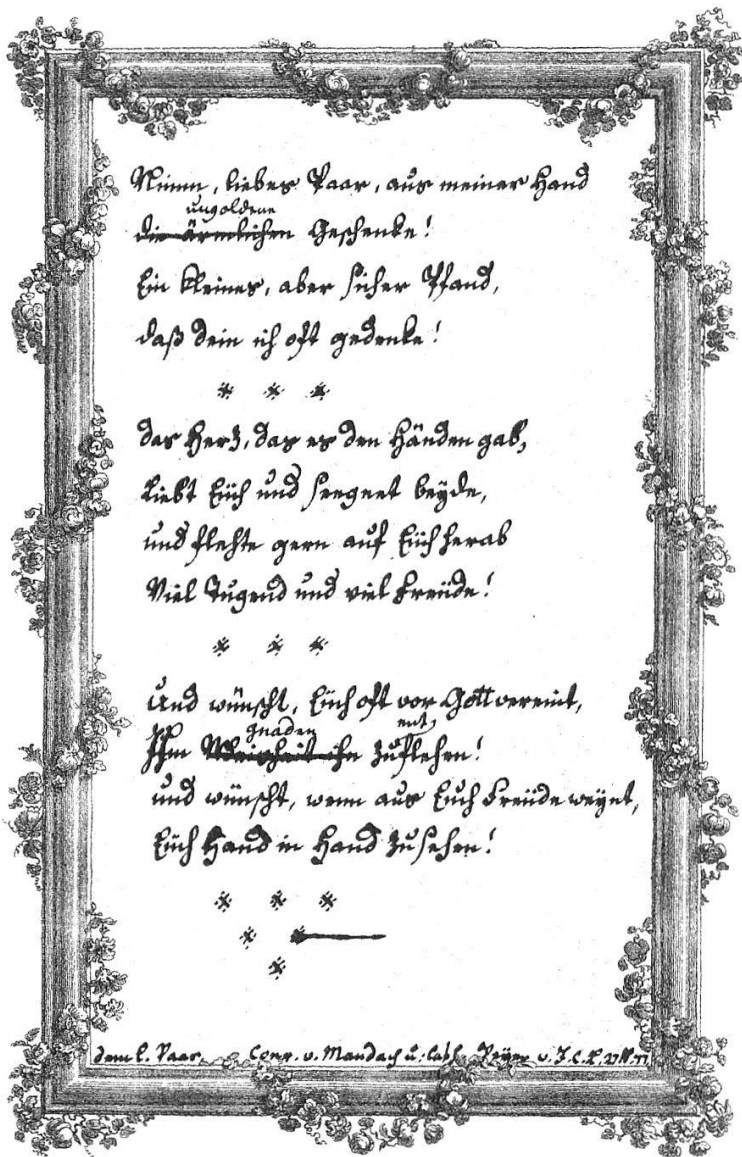 Nimm, liebes Paar, aus meiner Hand
ungoldene
die ärmlichen Geschenke!
Ein kleines, aber sicher Pfand,
daß dein ich oft gedenke!
* * *
das Herz, das es den Händen gab,
liebt Eüch und seegnet beyde,
und flehte gern auf Eüch herab
Viel Tugend und viel Freüde!
* * *
Und wünscht, Eüch oft vor Gott vereint,
Gnaden ent
Ihm Weisheit ihn zuflehen!
und wünscht, wenn aus Euch Freüde weynt,
Eüch Hand in Hand zusehen!
* * *
* *
*
dem l. Paar Conr. v. Mandach u: Cath. Peyer v. J. C. L.